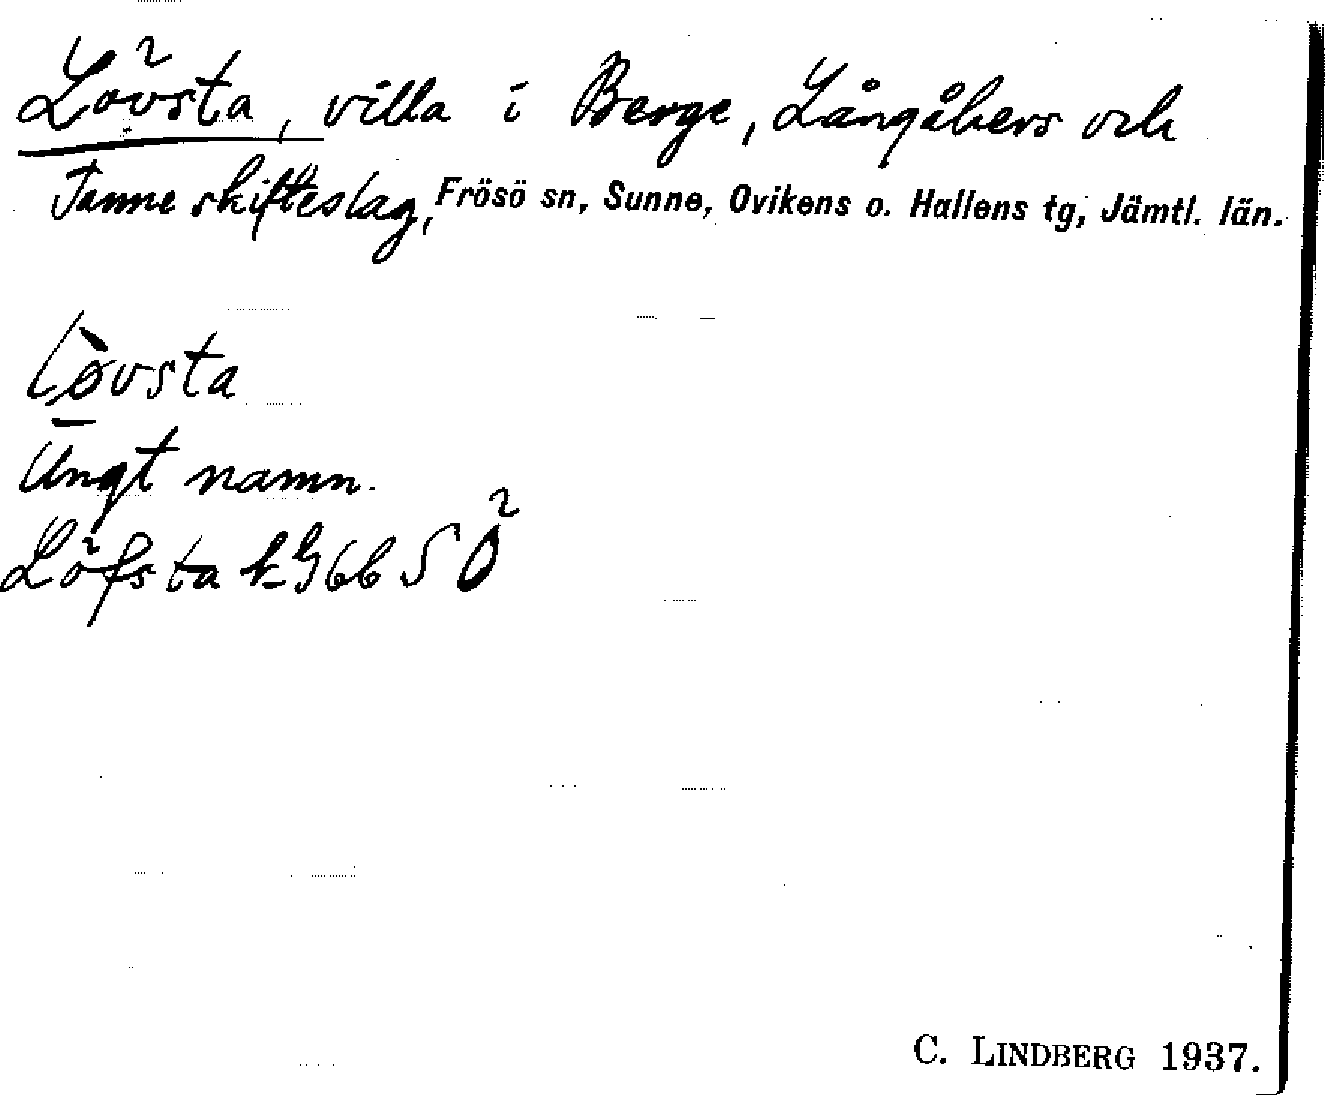 Lövsta, villa i Berge, Långåkers och
Tanne skifteslag, Frösö sn, Sunne, Ovikens o. Hallens tg, Jämtl. län.
Lòvsta
Ungt namn.
Löfsta kG66 SÖ
C. LINDBERG 1937.